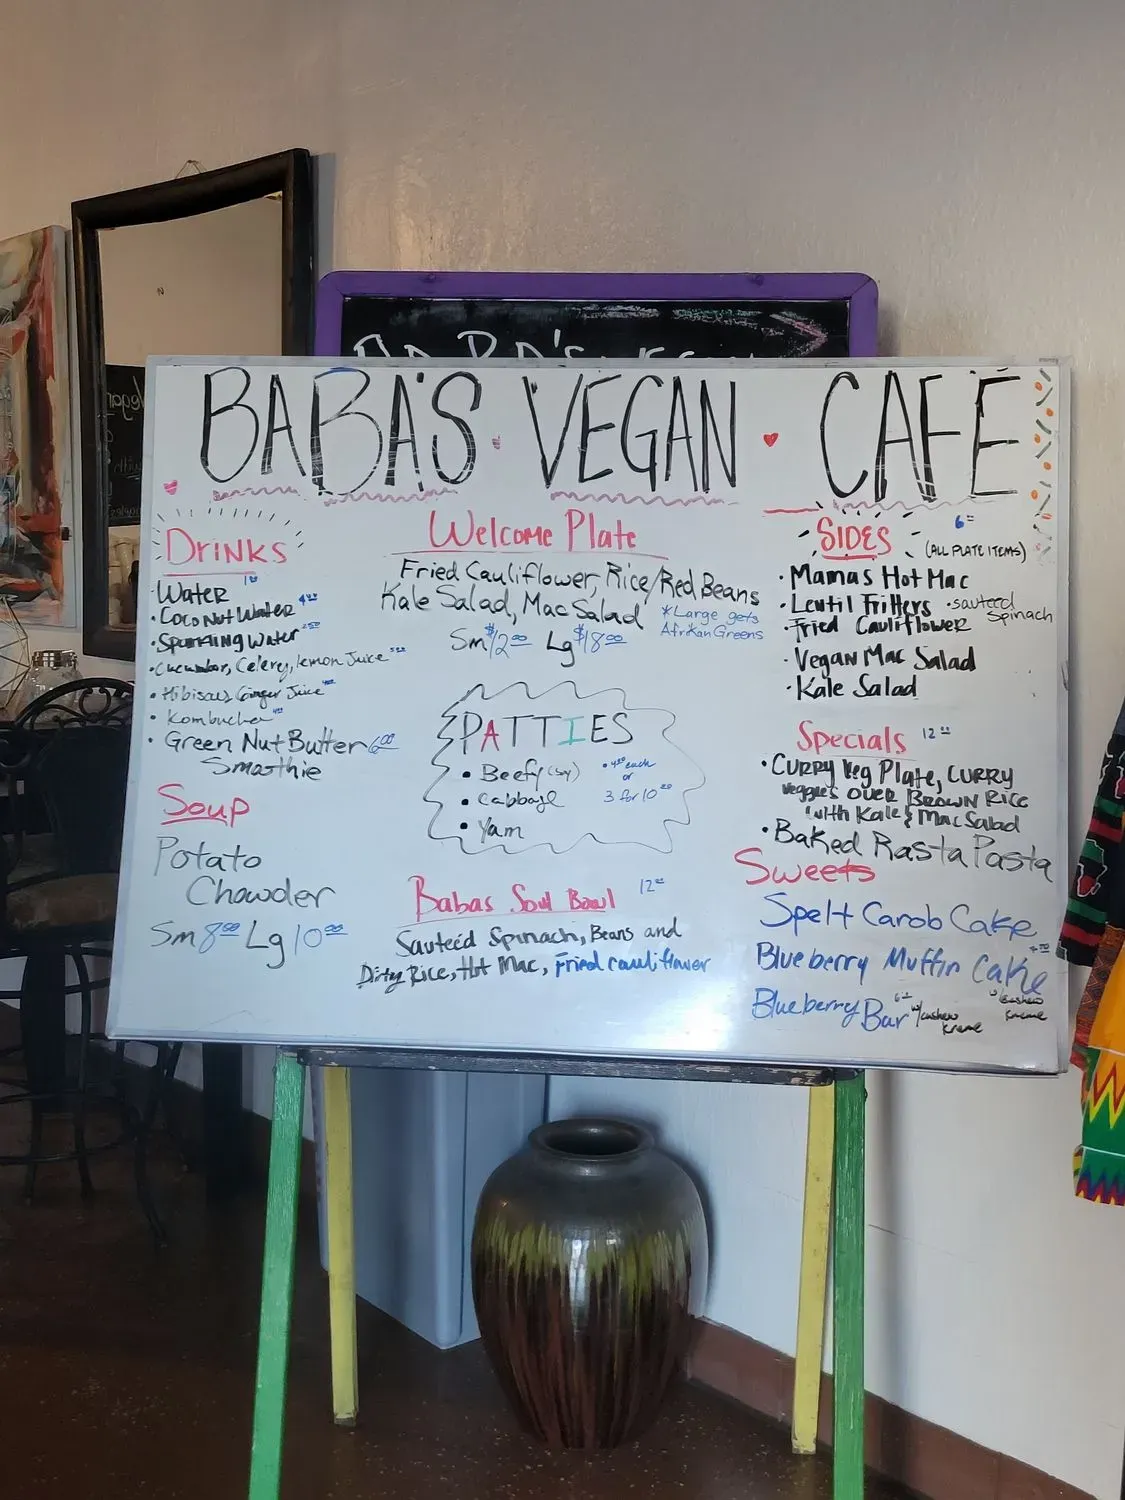 BABA'S VEGAN CAFÉ
DRINKS
Water 1.00
Coconut Water 4.00
Sparkling Water 2.50
Cucumber, Celery, lemon Juice
Hibiscus Ginger Juice
Kombucha
Green Nut Butter 6.00
Smoothie
Soup
Potato
Chowder
Sm 8.00 Lg 10.00
Welcome Plate
Fried Cauliflower, Rice/Red Beans
Kale Salad, Mac Salad
*Large gets
Afrikan Greens
Sm $12.00 Lg $18.00
PATTIES
Beefy (soy)
Cabbage
Yam
each
or
3 for 10.00
Babas Soul Bowl 12.00
Sauteéd Spinach, Beans and
Dirty Rice, Hot Mac, Fried cauliflower
SIDES 6
(ALL PLATE ITEMS)
Mamas Hot Mac
Lentil Fritters
sauteed
Spinach
Fried Cauliflower
Vegan Mac Salad
Kale Salad
Specials 12.00
Curry Veg Plate, Curry
Veggies over Brown Rice
with Kale & Mac Salad
Baked Rasta Pasta
Sweets
Spelt Carob Cake
Blueberry Muffin Cake
w/cashew
kreme
Blueberry Bar 6 w/cashew
kreme